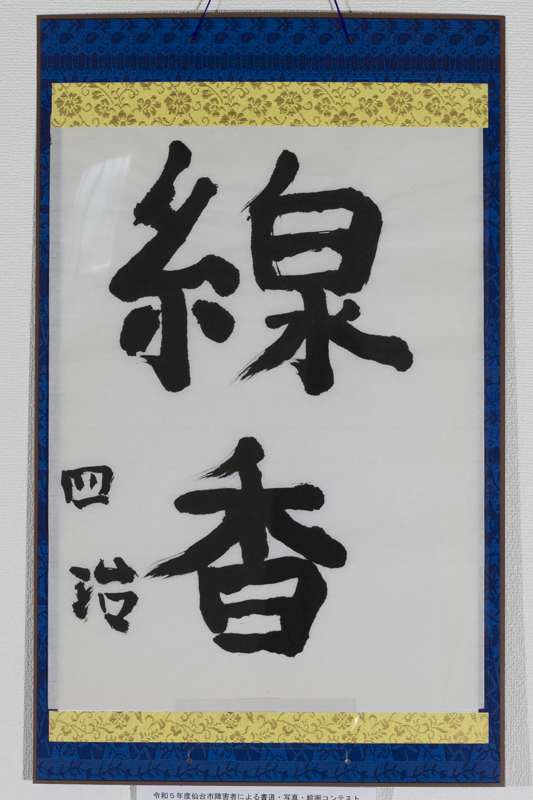 線香
四治
令和5年度仙台市障害者による書道・写真・絵画コンテスト